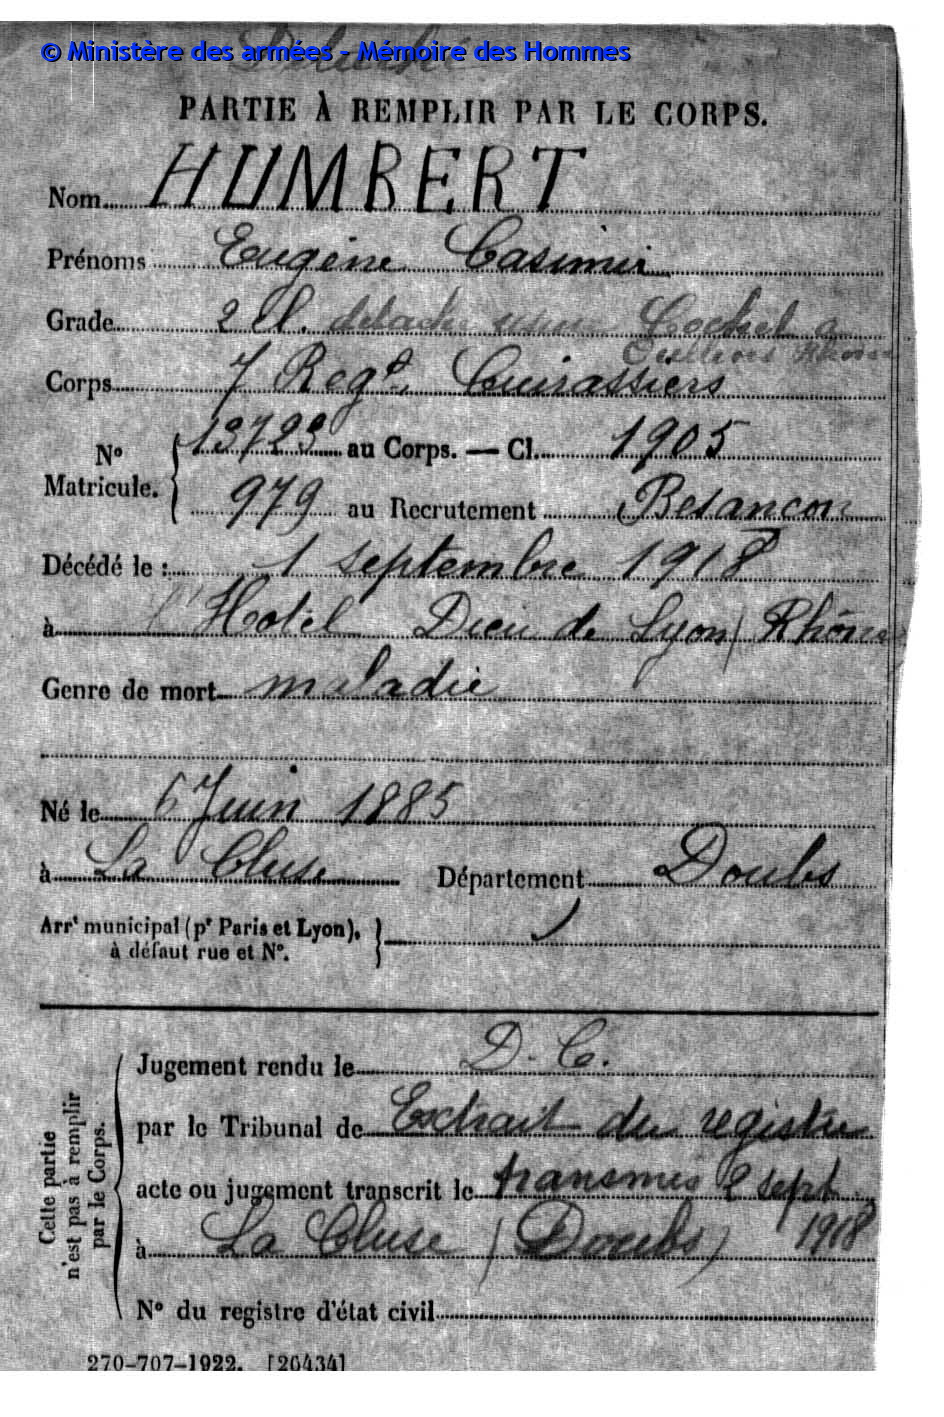 © Ministère des armées - Mémoire des Hommes
PARTIE À REMPLIR PAR LE CORPS.
Nom HUMBERT
Prénoms Eugène Casimir
Grade 2 Cl. détaché usine
Corps 7 Regt. Cuirassiers
No Matricule. { 13723 au Corps. — Cl. 1905
979 au Recrutement Besançon
Décédé le : 1 septembre 1918
à l'Hotel Dieu de Lyon (Rhône
Genre de mort maladie
Né le 6 Juin 1885
à La Cluse Département Doubs
Arrt municipal (pr Paris et Lyon), }
à défaut rue et No.
Cette partie
n'est pas à remplir
par le Corps.
Jugement rendu le D. C.
par le Tribunal de Extrait du registre
acte ou jugement transcrit le transmis 2 sept
1918
à La Cluse (Doubs)
No du registre d'état civil
270-707-1922. [26434]